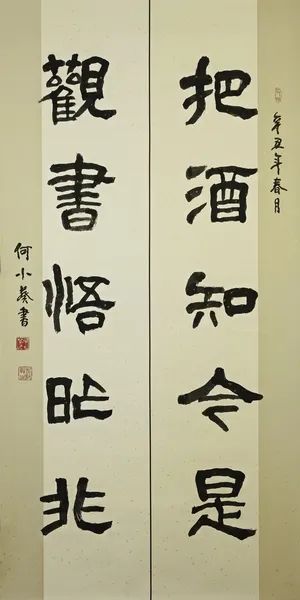 辛丑年春月
把酒知今是
觀書悟昨非
何小葵書